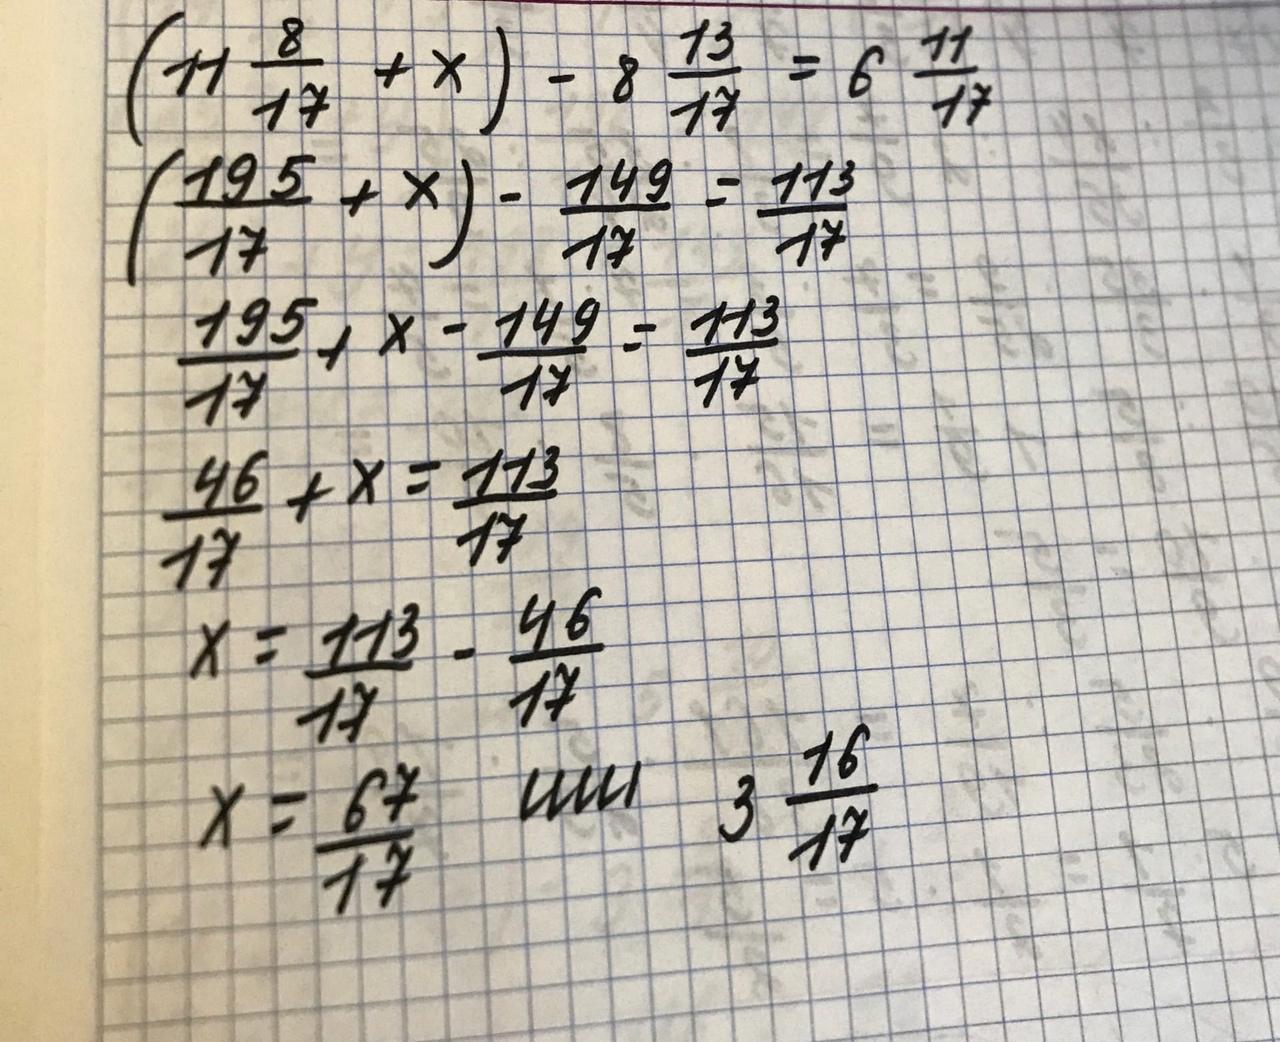 (11 8/17 + x) - 8 13/17 = 6 11/17
(195/17 + x) - 149/17 = 113/17
195/17 + x - 149/17 = 113/17
46/17 + x = 113/17
x = 113/17 - 46/17
x = 67/17 или 3 16/17